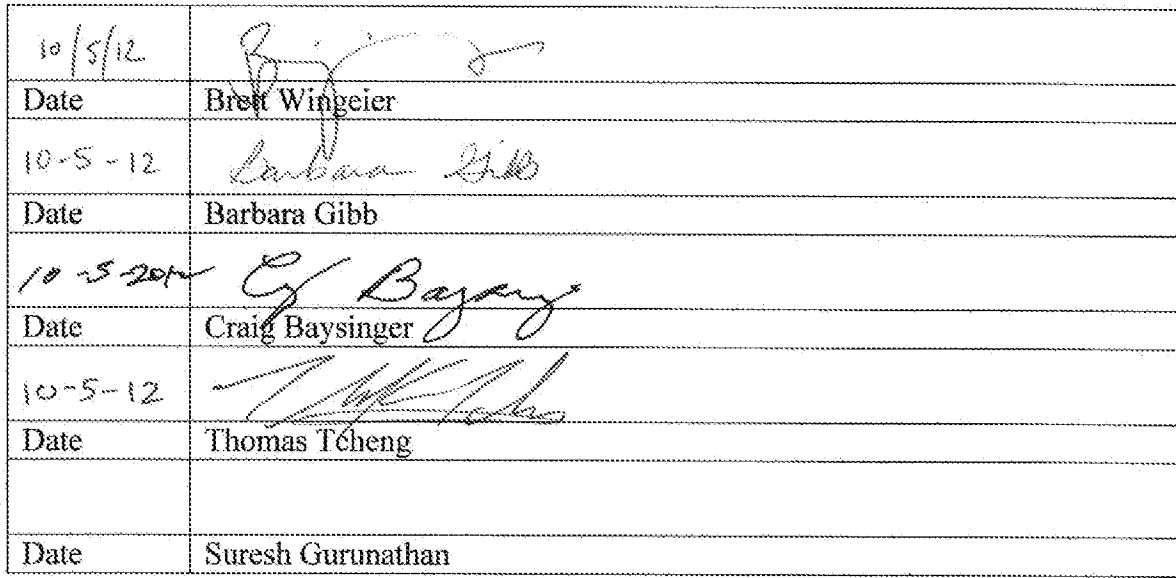 10/5/12
Date Brett Wingeier
10-5-12 Barbara Gibb
Date Barbara Gibb
10-5-2012
Date Craig Baysinger
10-5-12
Date Thomas Tcheng
Date Suresh Gurunathan